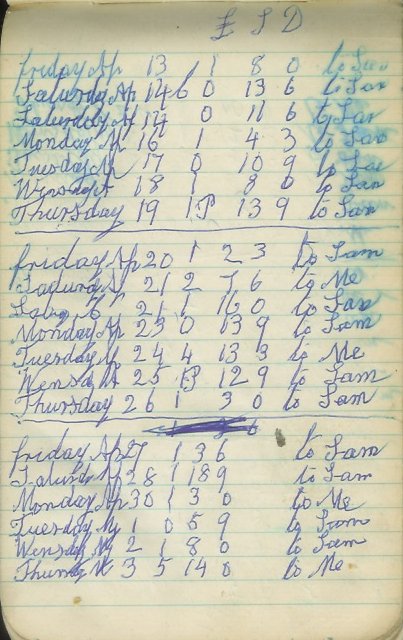 £ S D
friday Ap 13 1 8 0 to Sam
Saturday Ap 14 0 13 6 to Sam
Saturday Ap 14 0 11 6 to Sam
Monday Ap 16 1 4 3 to Sam
Tuesday Ap 17 0 10 9 to Sam
Wensday 18 1 8 0 to Sam
Thursday 19 1 13 9 to Sam
friday Ap 20 1 2 3 to Sam
Saturday 21 2 7 6 to Me
21 1 16 0 to Sam
Monday Ap 23 0 13 9 to Sam
Tuesday 24 4 13 3 to Me
Wensd 25 12 9 to Sam
Thursday 26 1 3 0 to Sam
friday Ap 27 1 3 6 to Sam
Saturd Ap 28 1 18 9 to Sam
Monday Ap 30 1 3 0 to Me
Tuesday My 1 0 5 9 to Sam
Wensday My 2 1 8 0 to Sam
3 5 14 0 to Me